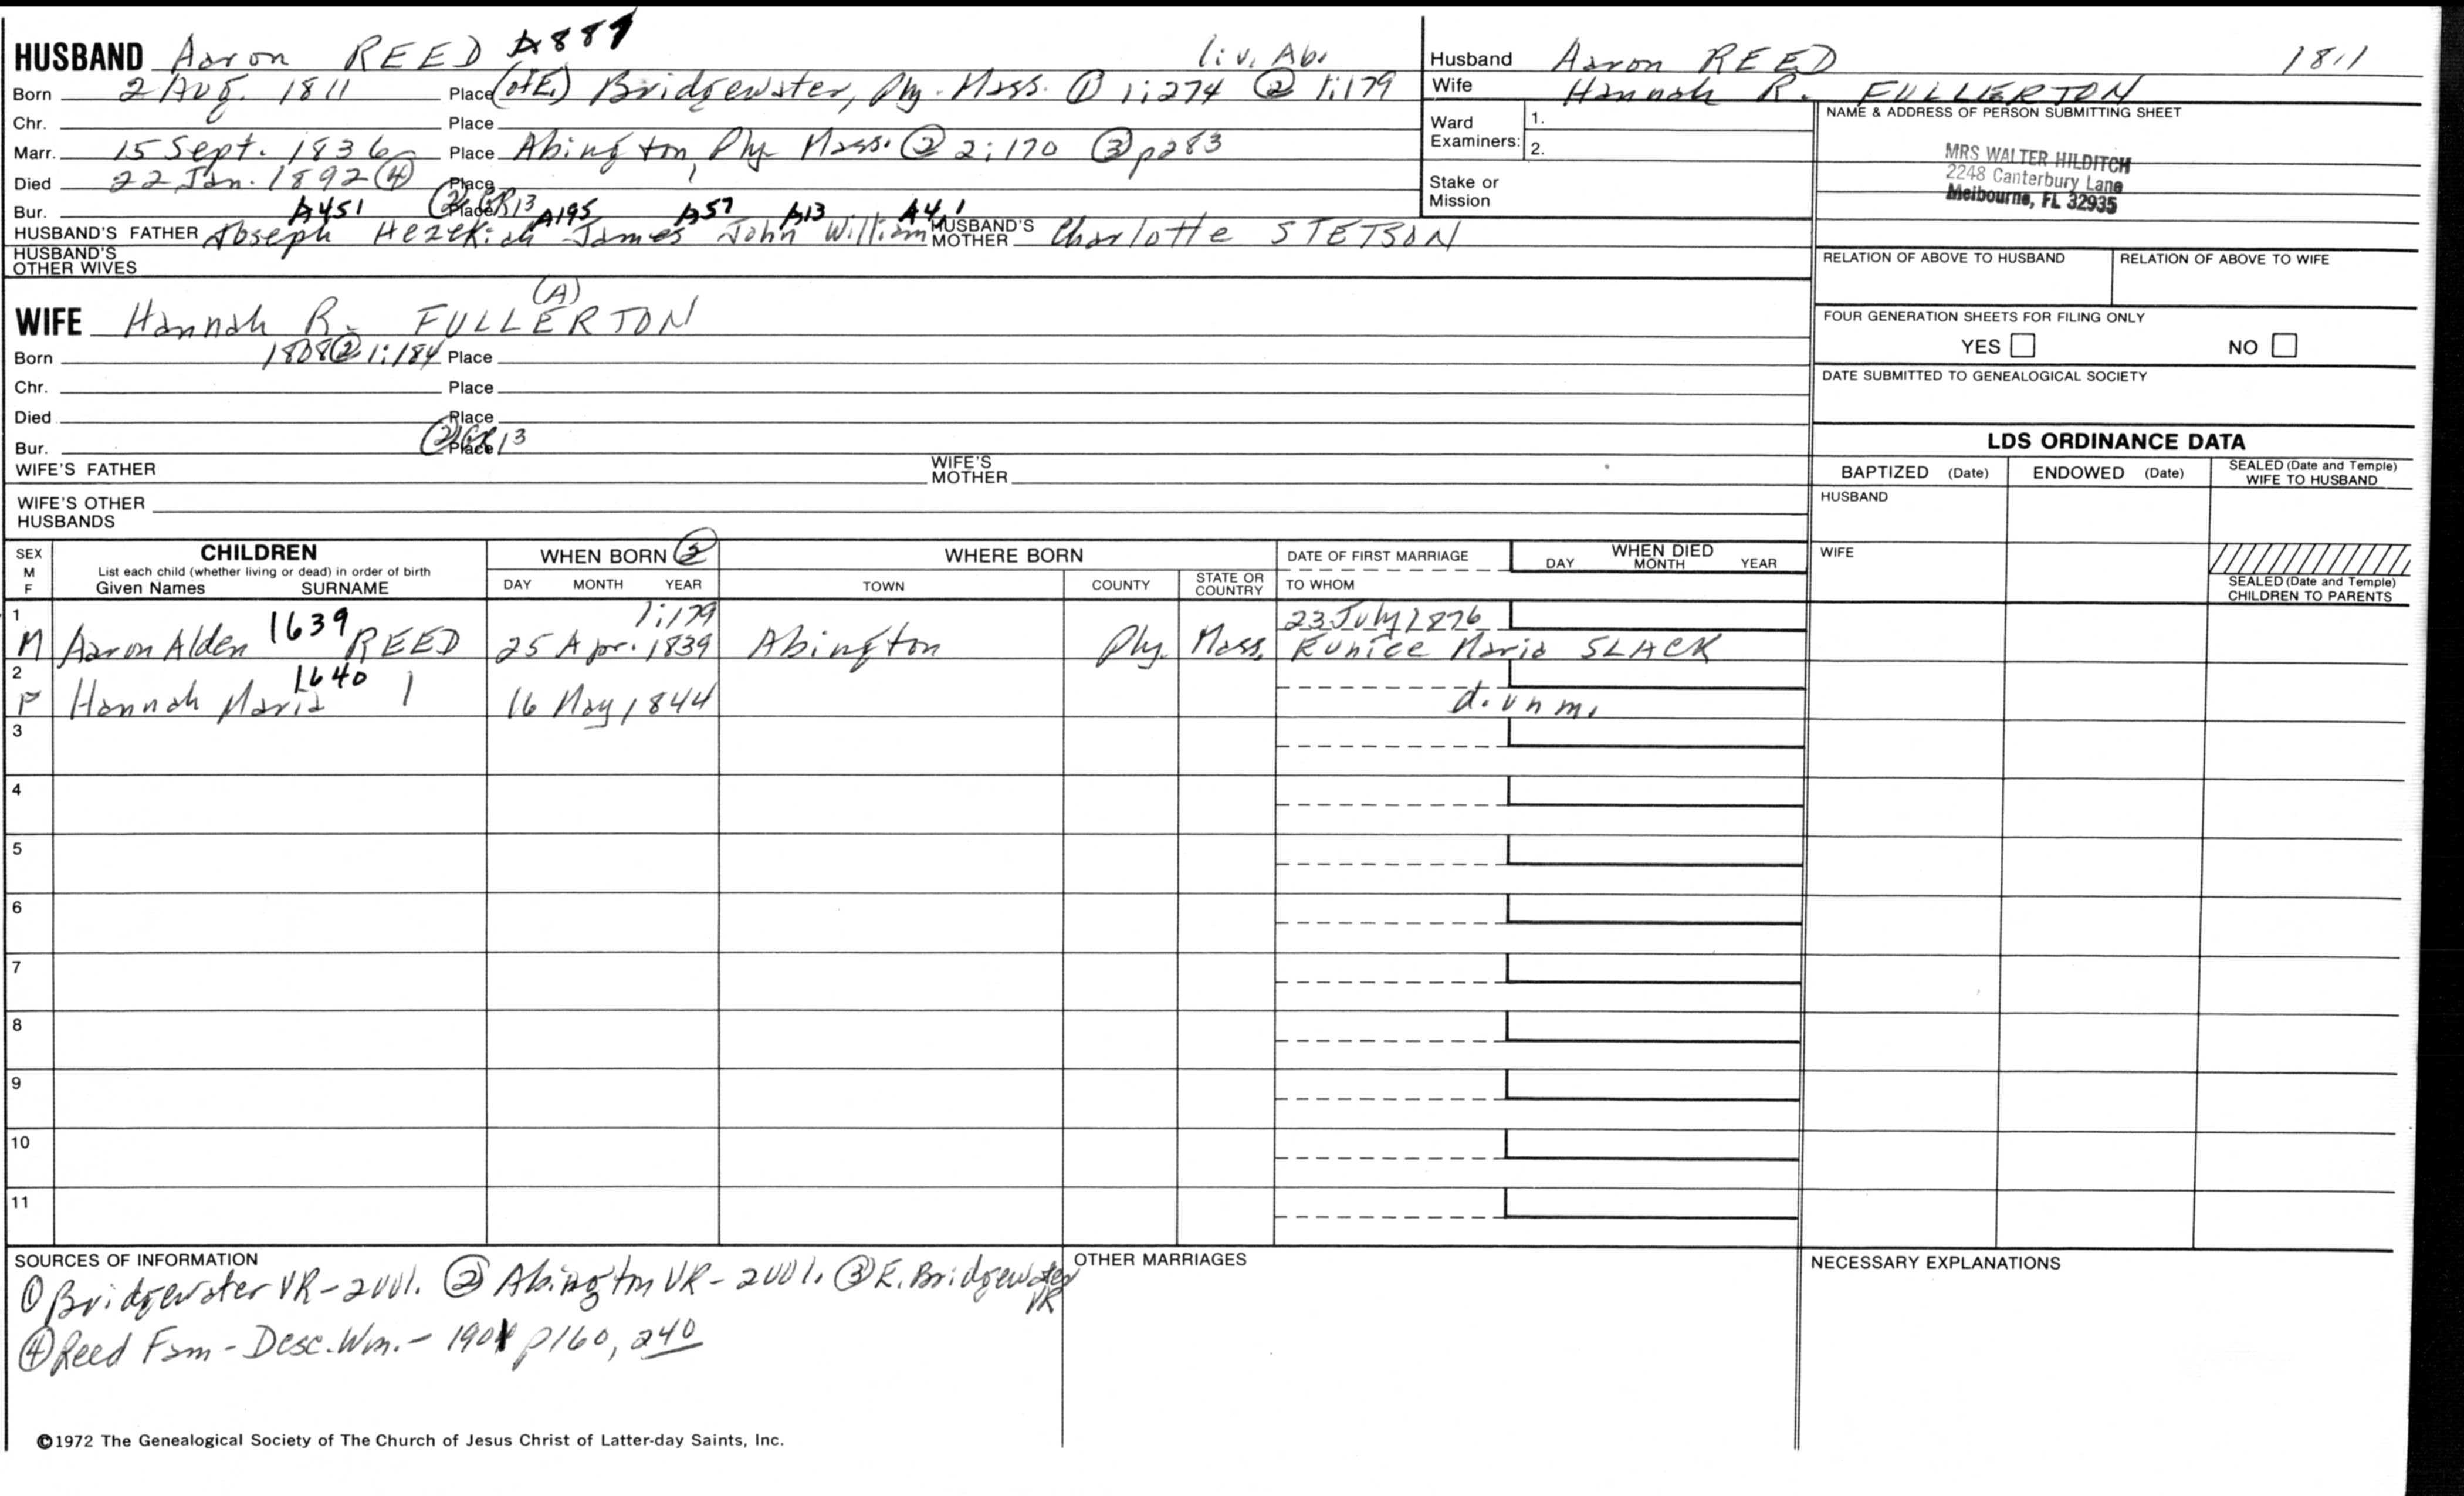 HUSBAND Aaron REED A887 liv. Ab.
Born 2 Aug. 1811 Place (of E.) Bridgewater, Ply. Mass. ① 1:274 ② 1:179
Chr. Place
Marr. 15 Sept. 1836 Place Abington, Ply. Mass. ② 2:170 ③ p283
Died 22 Jan. 1892 ④ Place
Bur. Place ② GR13
A451 A195 A57 A13 A4.1
HUSBAND'S FATHER Joseph Hezekiah James John William HUSBAND'S MOTHER Charlotte STETSON
HUSBAND'S OTHER WIVES
(A)
WIFE Hannah R. FULLERTON
Born 1808 ② 1:184 Place
Chr. Place
Died Place
Bur. Place ② GR13
WIFE'S FATHER WIFE'S MOTHER
WIFE'S OTHER HUSBANDS
Husband Aaron REED 1811
Wife Hannah R. FULLERTON
Ward Examiners: 1.
2.
Stake or Mission
NAME & ADDRESS OF PERSON SUBMITTING SHEET
MRS WALTER HILDITCH
2248 Canterbury Lane
Melbourne, FL 32935
RELATION OF ABOVE TO HUSBAND RELATION OF ABOVE TO WIFE
FOUR GENERATION SHEETS FOR FILING ONLY
YES NO
DATE SUBMITTED TO GENEALOGICAL SOCIETY
LDS ORDINANCE DATA
BAPTIZED (Date) ENDOWED (Date) SEALED (Date and Temple) WIFE TO HUSBAND
HUSBAND
WIFE
SEALED (Date and Temple) CHILDREN TO PARENTS
SEX M F CHILDREN WHEN BORN ② WHERE BORN DATE OF FIRST MARRIAGE WHEN DIED
List each child (whether living or dead) in order of birth
Given Names SURNAME DAY MONTH YEAR TOWN COUNTY STATE OR COUNTRY TO WHOM DAY MONTH YEAR
1 1639 1:179 23 July 1876
M Aaron Alden REED 25 Apr. 1839 Abington Ply. Mass. Eunice Maria SLACK
2 1640
F Hannah Maria 16 May 1844 d. unm.
3
4
5
6
7
8
9
10
11
SOURCES OF INFORMATION
① Bridgewater VR - 2vol. ② Abington VR - 2vol. ③ E. Bridgewater VR
④ Reed Fam - Desc. Wm. - 1901 p160, 240
OTHER MARRIAGES
NECESSARY EXPLANATIONS
©1972 The Genealogical Society of The Church of Jesus Christ of Latter-day Saints, Inc.